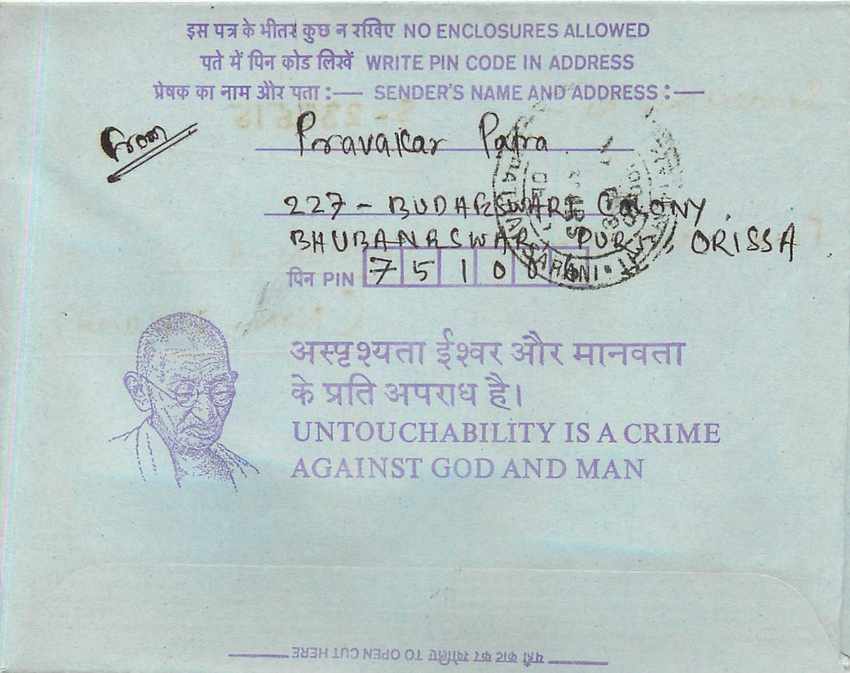 इस पत्र के भीतर कुछ न रखिए NO ENCLOSURES ALLOWED
पते में पिन कोड लिखें WRITE PIN CODE IN ADDRESS
प्रेषक का नाम और पता :— SENDER'S NAME AND ADDRESS :—
From Pravakar Patra
227 - BUDHESWARI COLONY,
BHUBANESWAR, PURI, ORISSA
पिन PIN 7 5 1 0 0 6
SARANI
अस्पृश्यता ईश्वर और मानवता
के प्रति अपराध है।
UNTOUCHABILITY IS A CRIME
AGAINST GOD AND MAN
यहाँ काट कर खोलिए TO OPEN CUT HERE